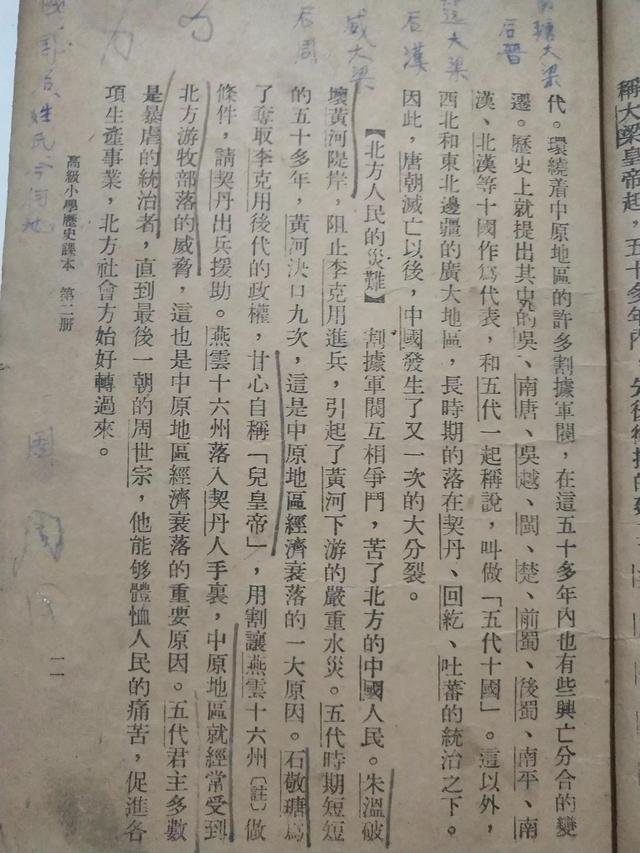 稱大梁皇帝起，五十多年內，先後
瑭大梁
后晉
大梁
后漢
威大梁
后周
代。環繞着中原地區的許多割據軍閥，在這五十多年內也有些興亡分合的變
遷。歷史上就提出其中的吳、南唐、吳越、閩、楚、前蜀、後蜀、南平、南
漢、北漢等十國作爲代表，和五代一起稱說，叫做「五代十國」。這以外，
西北和東北邊疆的廣大地區，長時期的落在契丹、回紇、吐蕃的統治之下。
因此，唐朝滅亡以後，中國發生了又一次的大分裂。
【北方人民的災難】 割據軍閥互相爭鬥，苦了北方的中國人民。朱溫破
壞黃河隄岸，阻止李克用進兵，引起了黃河下游的嚴重水災。五代時期短短
的五十多年，黃河決口九次，這是中原地區經濟衰落的一大原因。石敬瑭爲
了奪取李克用後代的政權，甘心自稱「兒皇帝」，用割讓燕雲十六州〔註〕做
條件，請契丹出兵援助。燕雲十六州落入契丹人手裏，中原地區就經常受到
北方游牧部落的威脅，這也是中原地區經濟衰落的重要原因。五代君主多數
是暴虐的統治者，直到最後一朝的周世宗，他能够體恤人民的痛苦，促進各
項生產事業，北方社會方始好轉過來。
高級小學歷史課本 第二册
一一
姓氏今何地
國
周